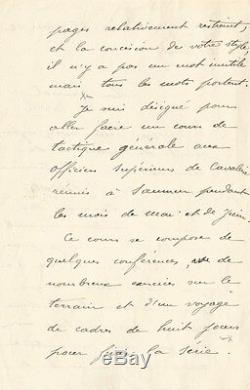 pages relativement restreint;
et la concision de votre style,
il n'y a pas un mot inutile
mais tous les mots portent.
Je suis désigné pour
aller faire un cours de
tactique générale aux
officiers supérieurs de Cavalerie
réunis à Saumur pendant
les mois de mai et de juin.
Ce cours se compose de
quelques conférences, de
nombreux exercices sur le
terrain et d'un voyage
de cadres de huit jours
pour finir la série.
ebay